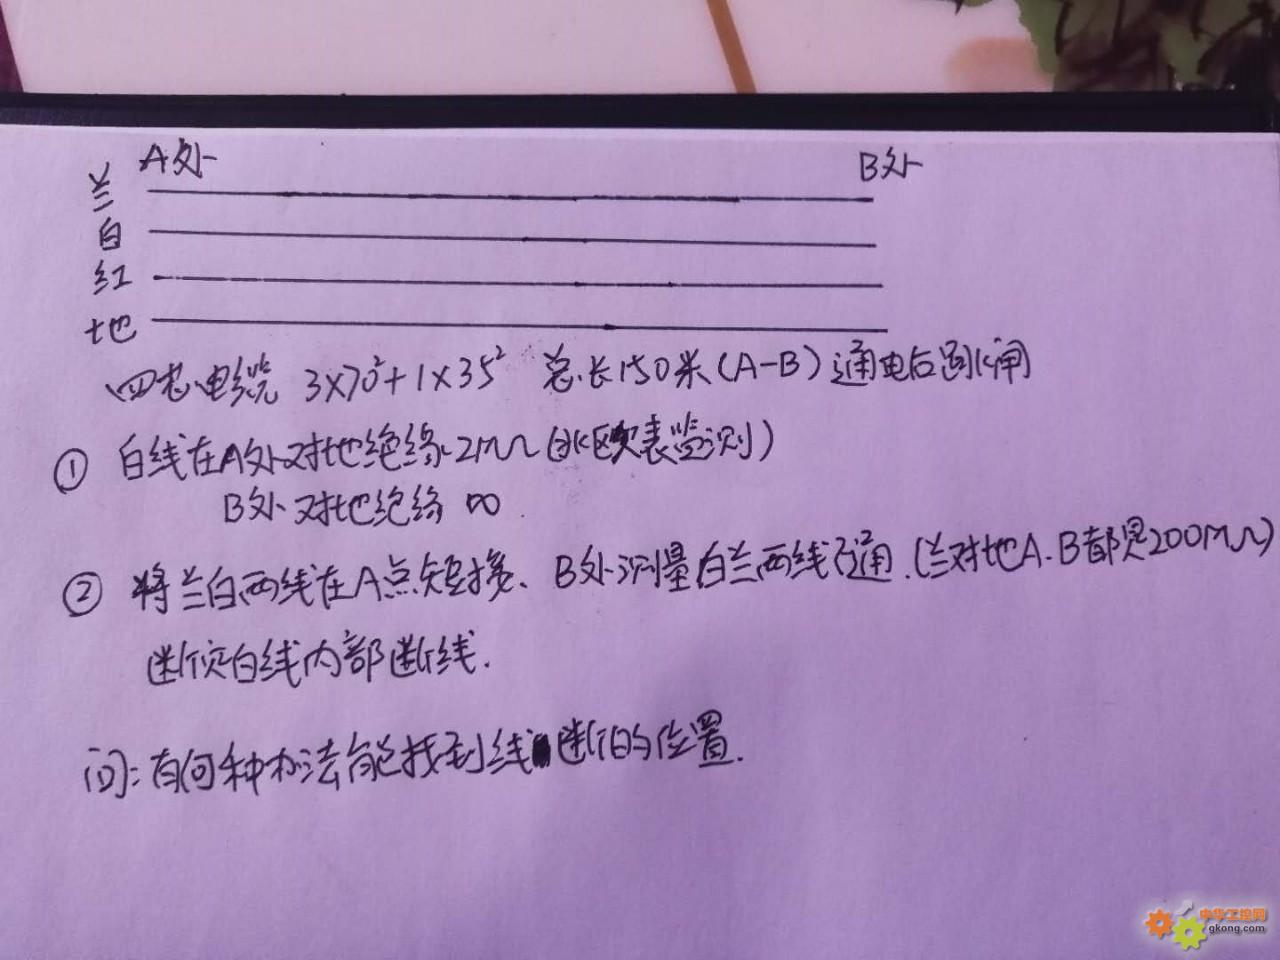 A处 B处
兰
白
红
地
四芯电缆 3×70²+1×35² 总长150米(A-B)通电后跳闸
① 白线在A处对地绝缘2MΩ(兆欧表监测)
B处对地绝缘 ∞
② 将兰白两线在A点短接、B处测量白兰两线不通.(兰对地A.B都是200MΩ)
断定白线内部断线.
问:有何种办法能找到线断的位置.
中华工控网
gkong.com